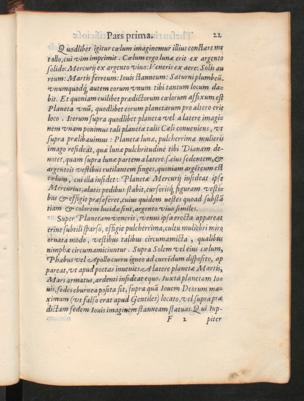 Pars prima. 22
Quodlibet igitur cælum imaginemur illius constare me
tallo, cui vim imprimit. Cælum ergo lunæ erit ex argento
solido: Mercurij ex argento vivo: Veneris ex aere: Solis au
reum: Martis ferreum: Iouis stanneum: Saturni plumbeū,
vnumquodq́; autem eorum vnum tibi tantum locum da-
bit. Et quoniam cuilibet prædictorum cælorum affixum est
Planeta vnū, quodlibet eorum planetarum pro altero erit
loco. Iterum supra quodlibet planeta vel a latere imagi-
nem vnam ponimus tali planetæ talis Cæli conueniens, vt
supra prælibauimus: Planeta luna, pulcherrima mulieris
imago resideat, quæ luna pulchritudine tibi Dianam de-
notet, quam supra luna partem a latere facias sedentem, &
argenteis vestibus rutilantem finges, quoniam argenteum est
cælum, cui illa insidet: Planetæ Mercurij insideat ipse
Mercurius, alatis pedibus stabit, cursoriiq́; figuram vesti-
bus & effigie præseferet, cuius quidem vestes quoad substā
tiam & colorem liuidæ sint, argento viuo similes.
Super Planetam veneris, venus ipsa erecta appareat
crine subtili sparso, effigie pulcherrima, cultu mulieri mirè
ornata modo, vestibus talibus circumamicta, qualibus
nimphæ circumamiciuntur. Supra Solem vel eius cælum,
Phæbus vel Apollo curru igneo ad currēdum disposito, ap
pareat, vt apud poetas inuenies. A latere planetæ Martis,
Mars armatus, ardenti insideat equo. Iuxta planetam Io-
uis, sedes eburnea posita sit, supra quā Iouem Deorum ma-
ximum (vt falso erat apud Gentiles) locato, vel supra præ
dictam sedem Iouis imaginem stanneam statuas. Qui Iup-
F 2 piter